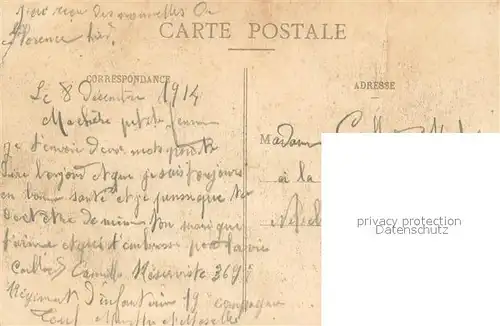 J'ai reçu des nouvelles de
Florence hier
CARTE POSTALE
CORRESPONDANCE
ADRESSE
Le 8 Décembre 1914
Ma chère petite femme
je t'envoie deux mots pour te
dire bonjour et que je suis toujours
en bonne santé et je pense que
de même ton mari que
t'aime et qui t'embrasse pour la vie
Camille Réserviste 369e
Régiment d'infanterie 19e Compagnie
Toul Meurthe et Moselle
Madame
à la
privacy protection
Datenschutz